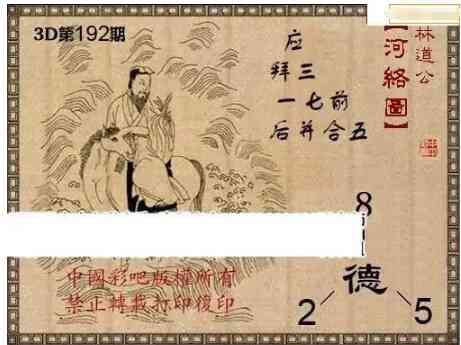 3D第192期
林道公
【河絡圖】
应
拜三
一七前
后并合五
8
德
2
5
中國彩吧版權所有
禁止轉載打印復印